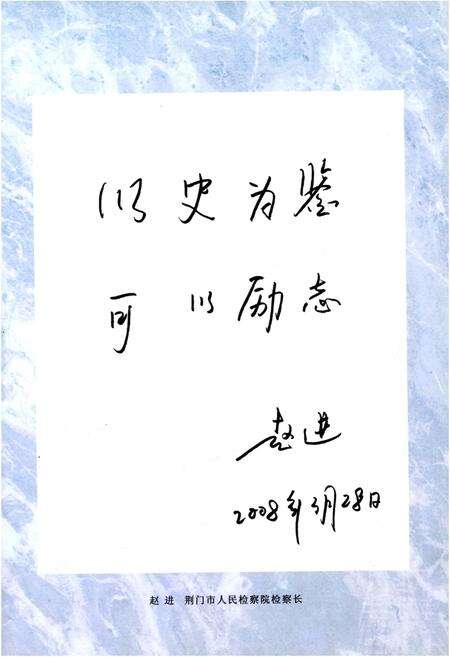 以史为鉴
可以励志
赵进
2008年3月28日
赵 进 荆门市人民检察院检察长